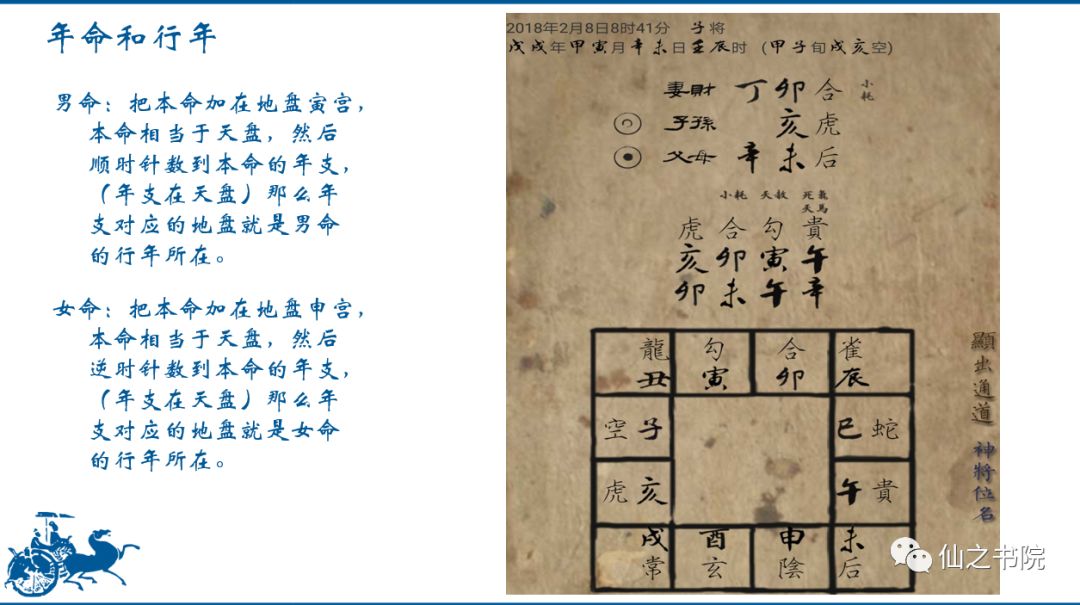 年命和行年
男命：把本命加在地盘寅宫，
本命相当于天盘，然后
顺时针数到本命的年支，
（年支在天盘）那么年
支对应的地盘就是男命
的行年所在。
女命：把本命加在地盘申宫，
本命相当于天盘，然后
逆时针数到本命的年支，
（年支在天盘）那么年
支对应的地盘就是女命
的行年所在。
2018年2月8日8时41分 子将
戊戌年甲寅月辛未日壬辰时 (甲子旬戌亥空)
妻財 丁卯合 小耗
子孫 亥虎
父母 辛未后
小耗 天赦 死氣
天馬
虎合勾貴
亥卯寅午
卯未午辛
龍 勾 合 雀
丑 寅 卯 辰
空子 巳蛇
虎亥 午貴
戌 酉 申 未
常 玄 陰 后
顯出通道
神將位名
仙之书院